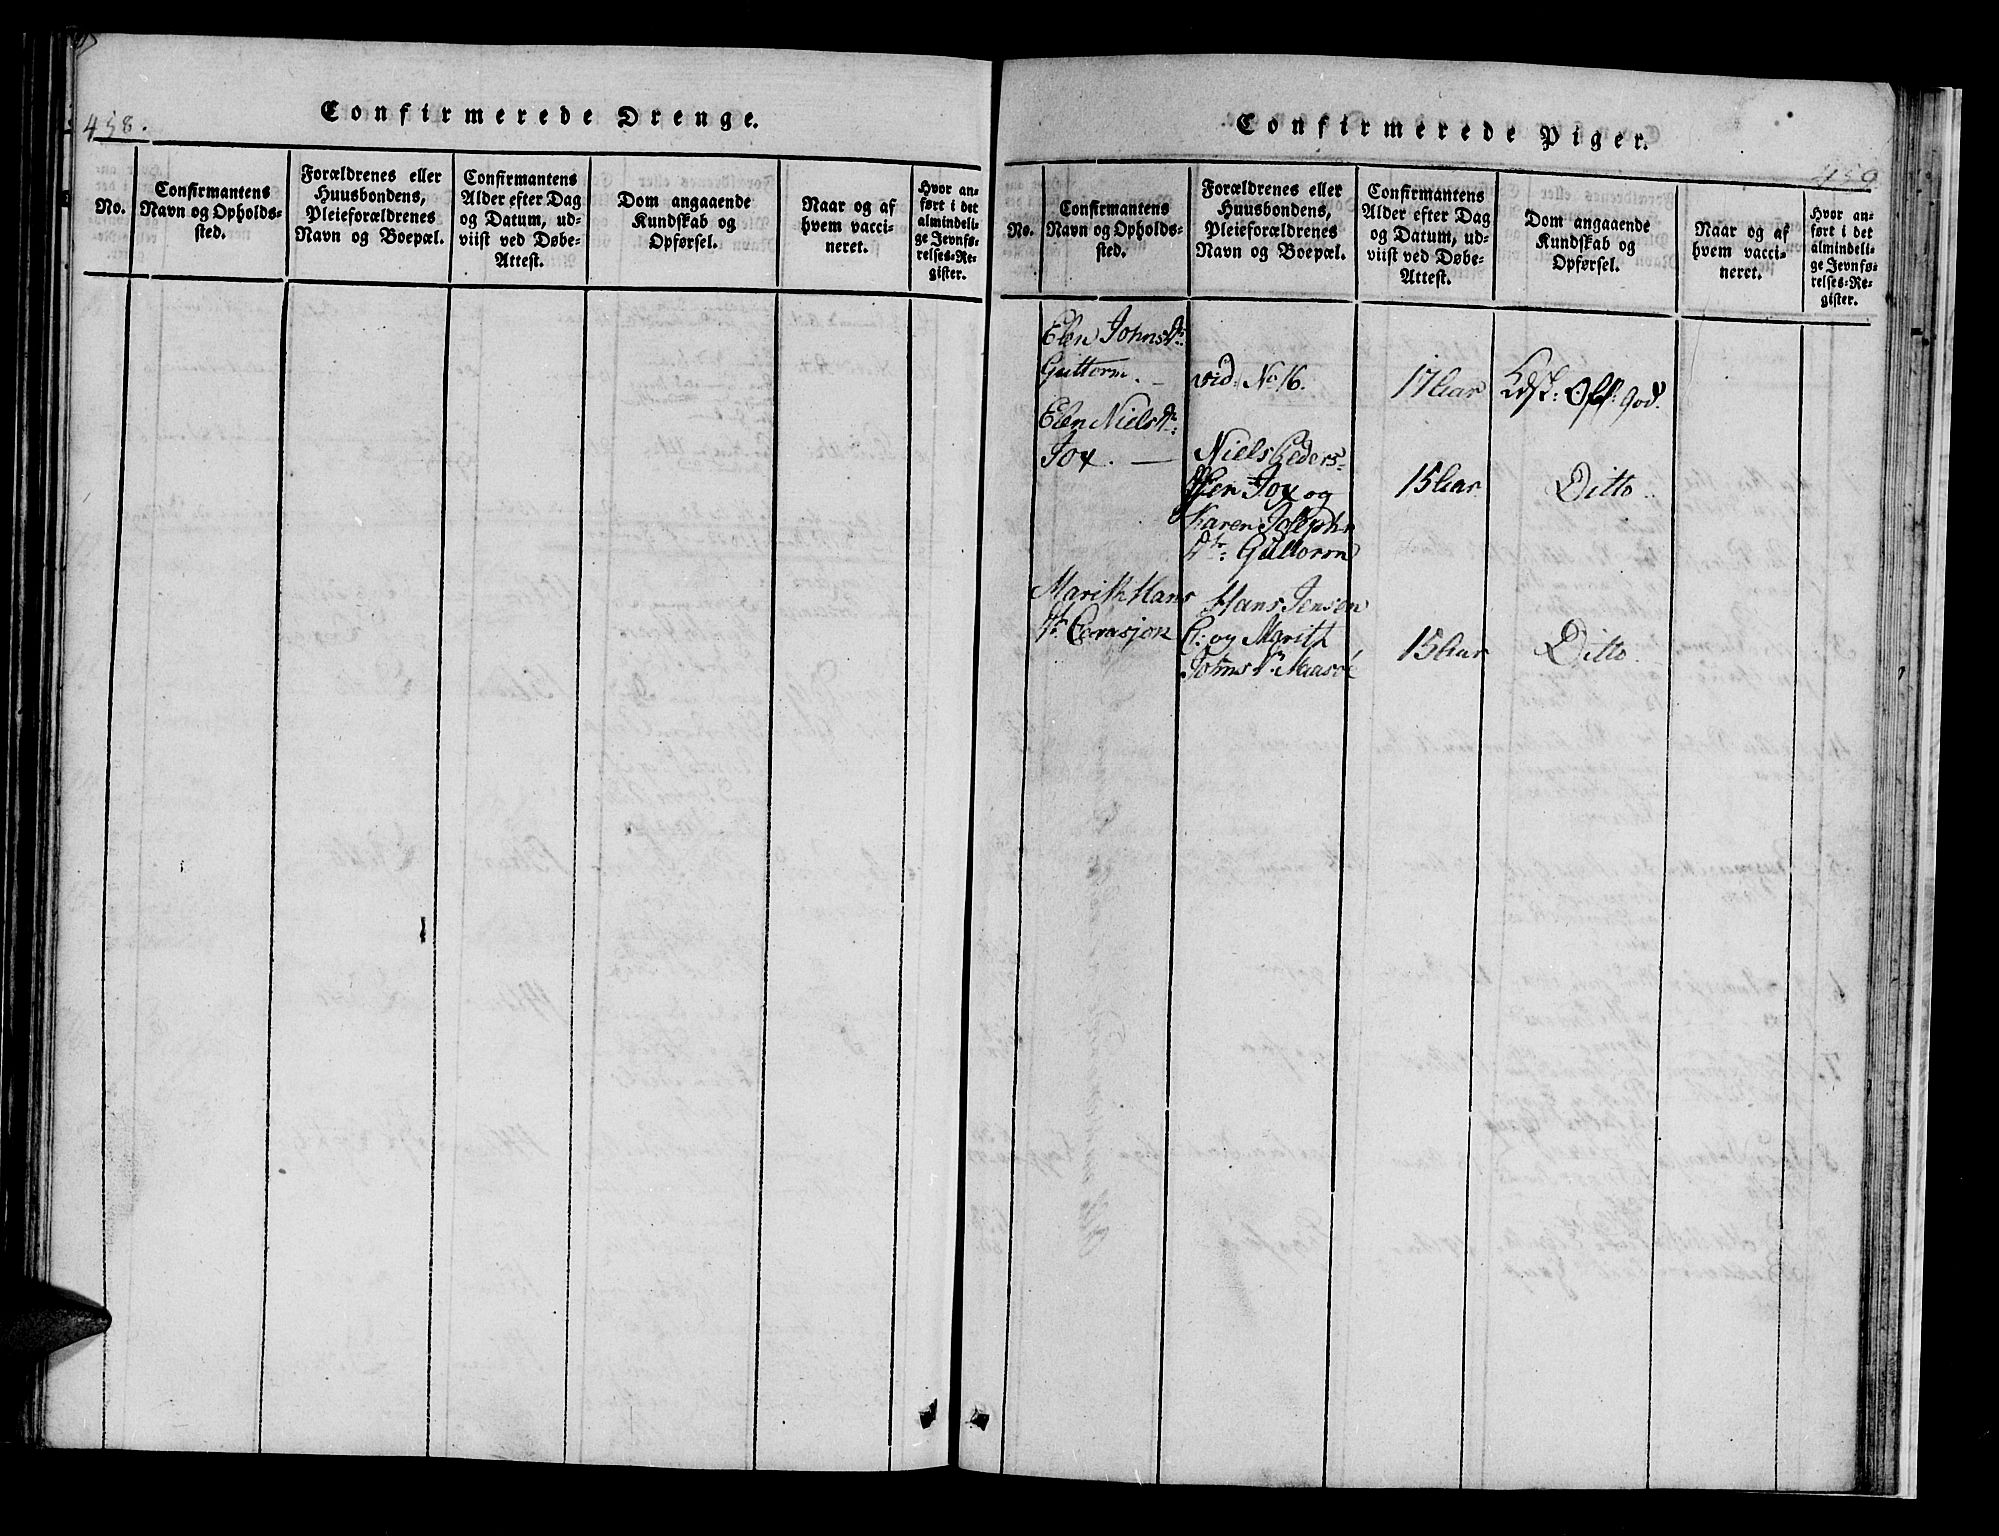 458.
Confirmerede Drenge.
No.
Confirmantens
Navn og Opholds-
sted.
Forældrenes eller
Huusbondens,
Pleieforældrenes
Navn og Boepæl.
Confirmantens
Alder efter Dag
og Datum, ud-
viist ved Døbe-
Attest.
Dom angaaende
Kundskab og
Opførsel.
Naar og af
hvem vacci-
neret.
Hvor an-
ført i det
almindeli-
ge Jevnfø-
relses-Re-
gister.
Confirmerede Piger.
459
No.
Confirmantens
Navn og Opholds-
sted.
Forældrenes eller
Huusbondens,
Pleieforældrenes
Navn og Boepæl.
Confirmantens
Alder efter Dag
og Datum, ud-
viist ved Døbe-
Attest.
Dom angaaende
Kundskab og
Opførsel.
Naar og af
hvem vacci-
neret.
Hvor an-
ført i det
almindeli-
ge Jevnfø-
relses-Re-
gister.
Elen Johnsdr:
Guttorm. -
vid. No 16.
17 Aar
god.
Elen Nielsdr:
Jox. -
Niels Peder-
Jox og
Karen Joseph
dr: Guttorm
15 Aar
Ditto
Marith Hans
dr
Hans Jensen
og Marith
Johns dr Maasöe
15 Aar
Ditto